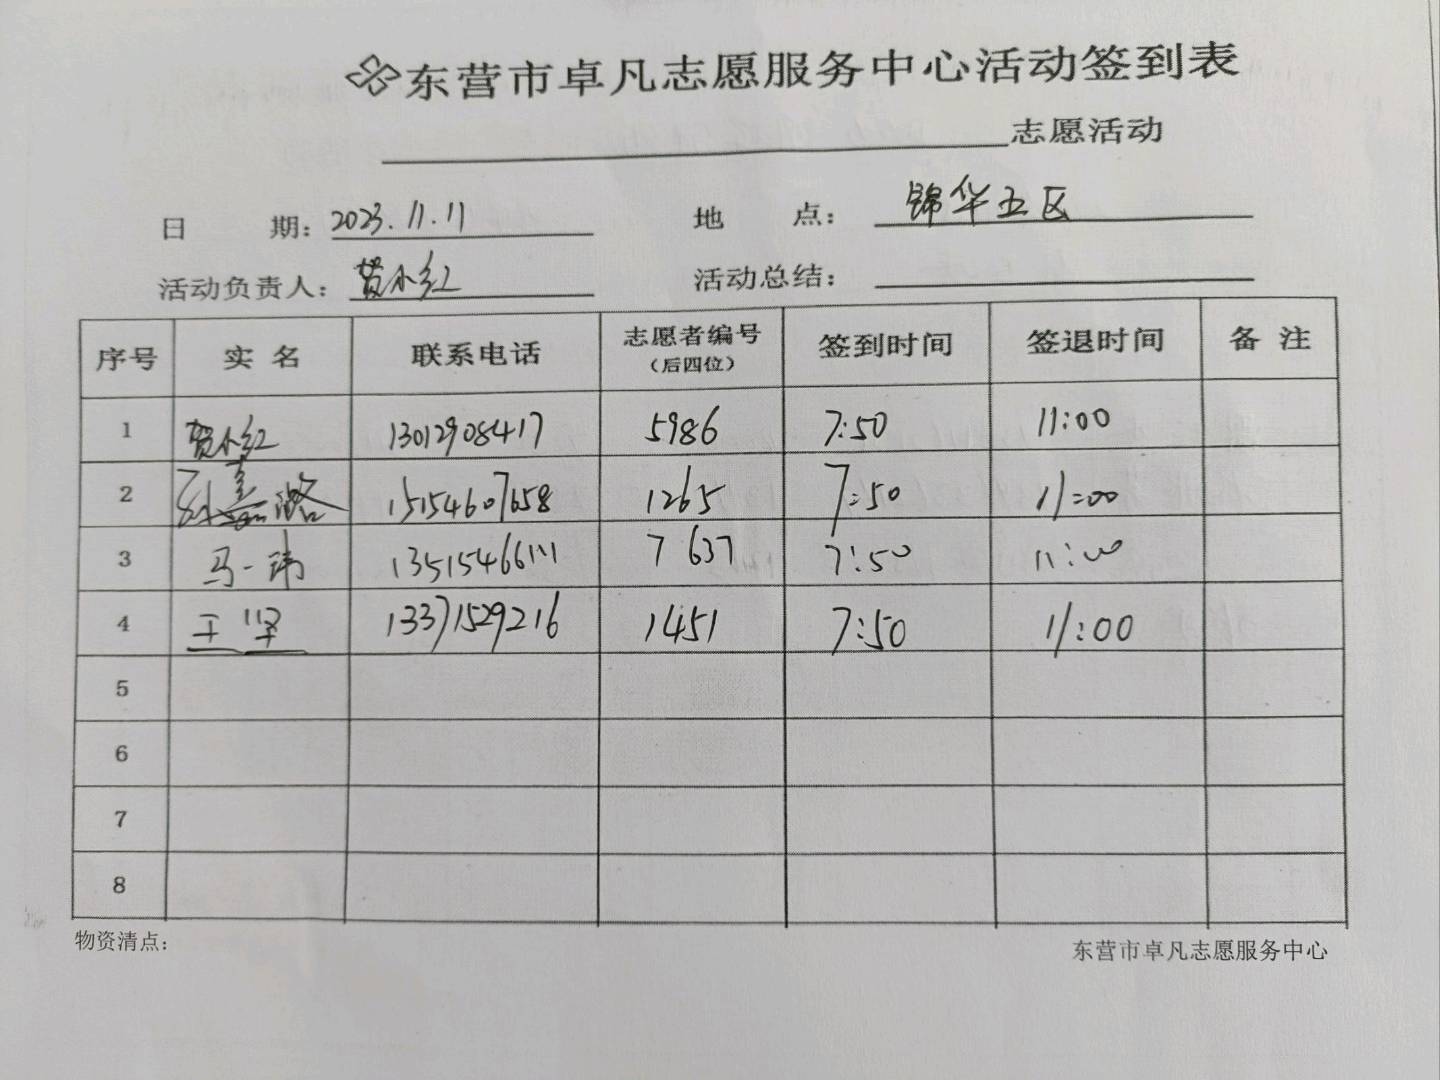 东营市卓凡志愿服务中心活动签到表
志愿活动
日 期: 2023.11.11 地 点: 锦华五区
活动负责人: 贺小红 活动总结:
序号 实名 联系电话 志愿者编号(后四位) 签到时间 签退时间 备注
1 贺小红 13012908417 5986 7:50 11:00
2 15154607658 1265 7:50 11:00
3 马一玮 13515466111 7637 7:50 11:00
4 王坚 13371529216 1451 7:50 11:00
5
6
7
8
物资清点: 东营市卓凡志愿服务中心